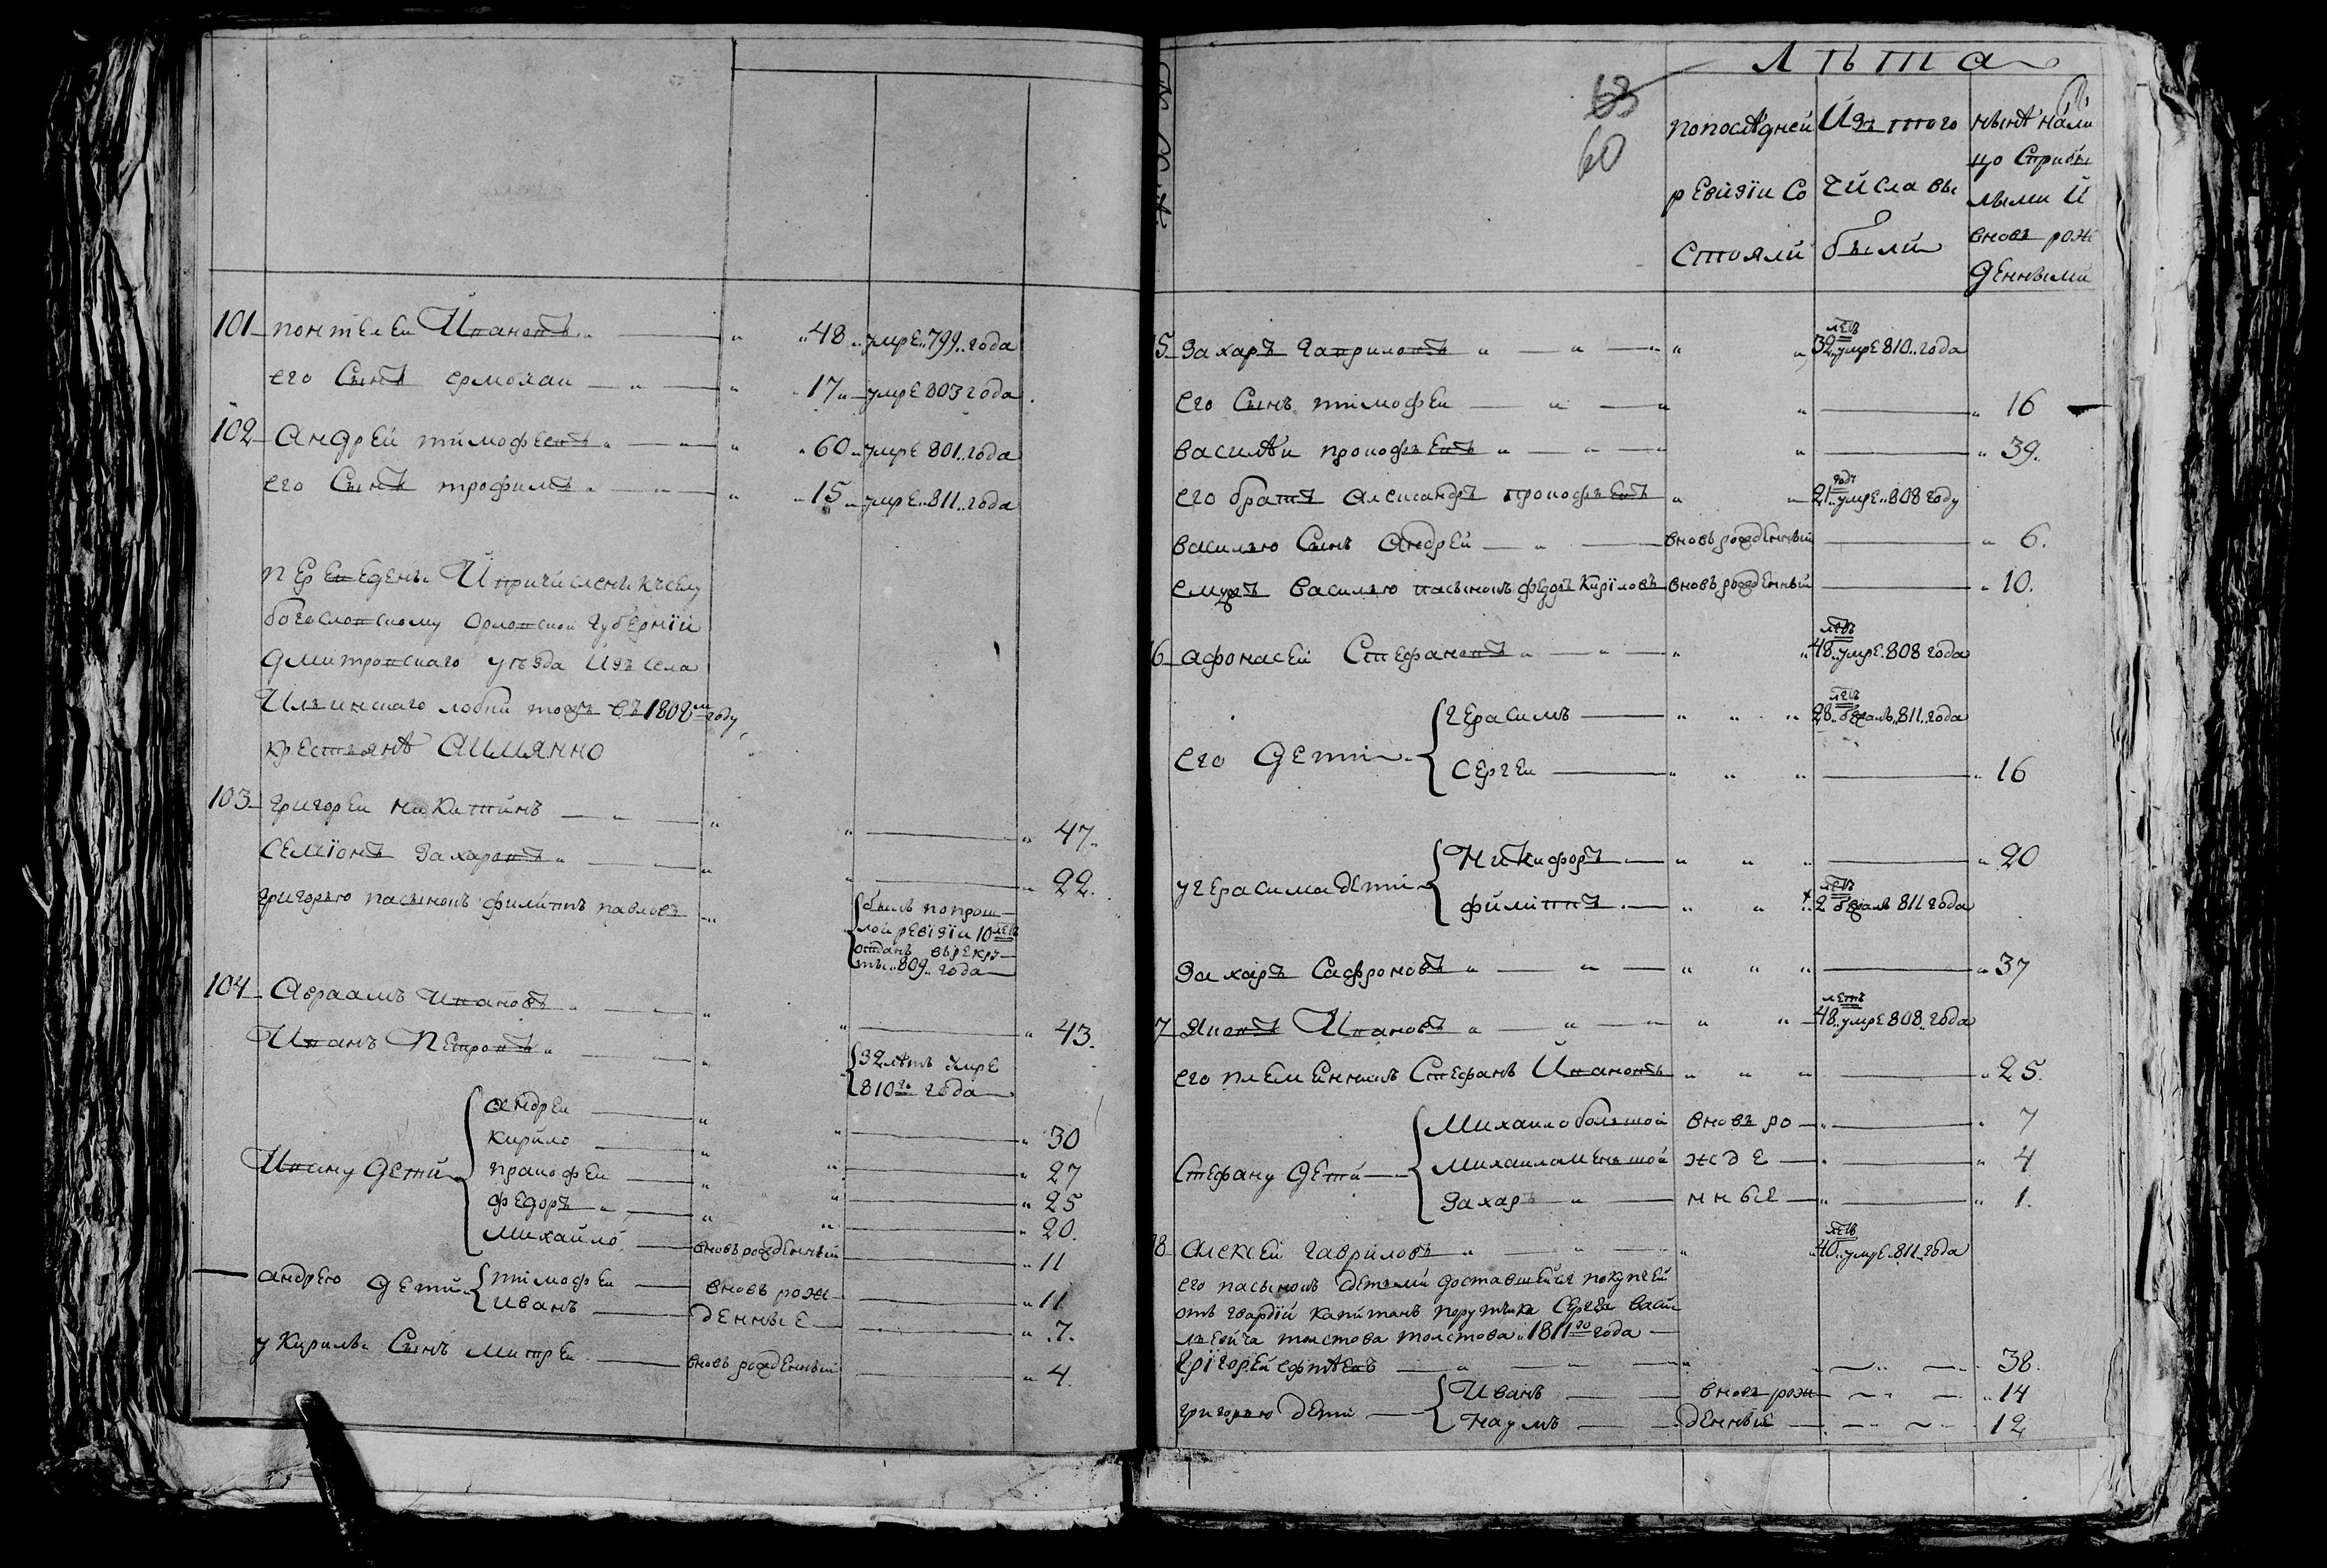 101 понтелеи Ивановъ 48 умре 799 года
его Сынъ ермолаи 17 умре 803 года
102 Андрей тимофеевъ 60 умре 801 года
его Сынъ трофимъ 15 умре 811 года
пЕреведены Ипричислены къселу
богословскому Орловской губЕрнїи
Дмитровскаго уѣзда Изъ села
Ильинскаго лобки тожъ въ 1808м году
крестьянѣ Аимянно
103 григореи никитинъ 47
СЕмїонъ Захаровъ 22.
григорью пасынокъ филиппъ павловъ былъ попрош
лой рЕвїзїи 10 летъ
отданъ врекру
ты 809 года
104 Авраамъ Ивановъ 43.
Иванъ Петровъ 32 лѣтъ умре
810го года
Ивану Дети андреи 30
кирило 27
пракофеи 25
фЕдоръ 20.
михаило вновь рожденный 11
андрею Дети тимофеи вновь рож 11
иванъ денные 7.
у Кирилы Сынъ митреи вновь рожденный 4.
63
60
Лѣта
попослѣдней рЕвизїи Состояли
Изъ того числа выбыли
нынѣ нали
цо Сприбы
лыми И
вновь рож
денными
5 Захаръ гавриловъ 32 летъ умре 810 года
его Сынъ тимофеи 16
василѣи прокофьевъ 39.
его братъ александръ прокофьевъ 21 годъ умре 808 году
василью Сынъ Андрей вновь рожденный 6.
емужъ василью пасынокъ фЕдоръ Кирїловъ вновь рожденный 10.
6 афонасеи Стефановъ 48 летъ умре 808 года
его Дети гЕрасимъ 28 летъ бежалъ 811 года
СЕргеи 16
у гЕрасима дети Никифоръ 20
филиппъ 2 летъ бежалъ 811 года
Захаръ Сафроновъ 37
7 Яковъ Ивановъ 48 летъ умре 808 года
его племЕнникъ Стефанъ Ивановъ 25.
Стефану Дети Михаило большой вновь ро 7
михаила меньшой жде 4
Захаръ нные 1.
8 алексей гавриловъ 40 летъ умре 811 года
его пасынокъ Детьми доставшейся покупкей
отъ гвардїи капитанъ порутчика Сергея васи
льевича толстова толстова 1811го года
грїгореи ефтѣевъ 38.
григорью дети Иванъ вновь рож 14
наумъ денные 12